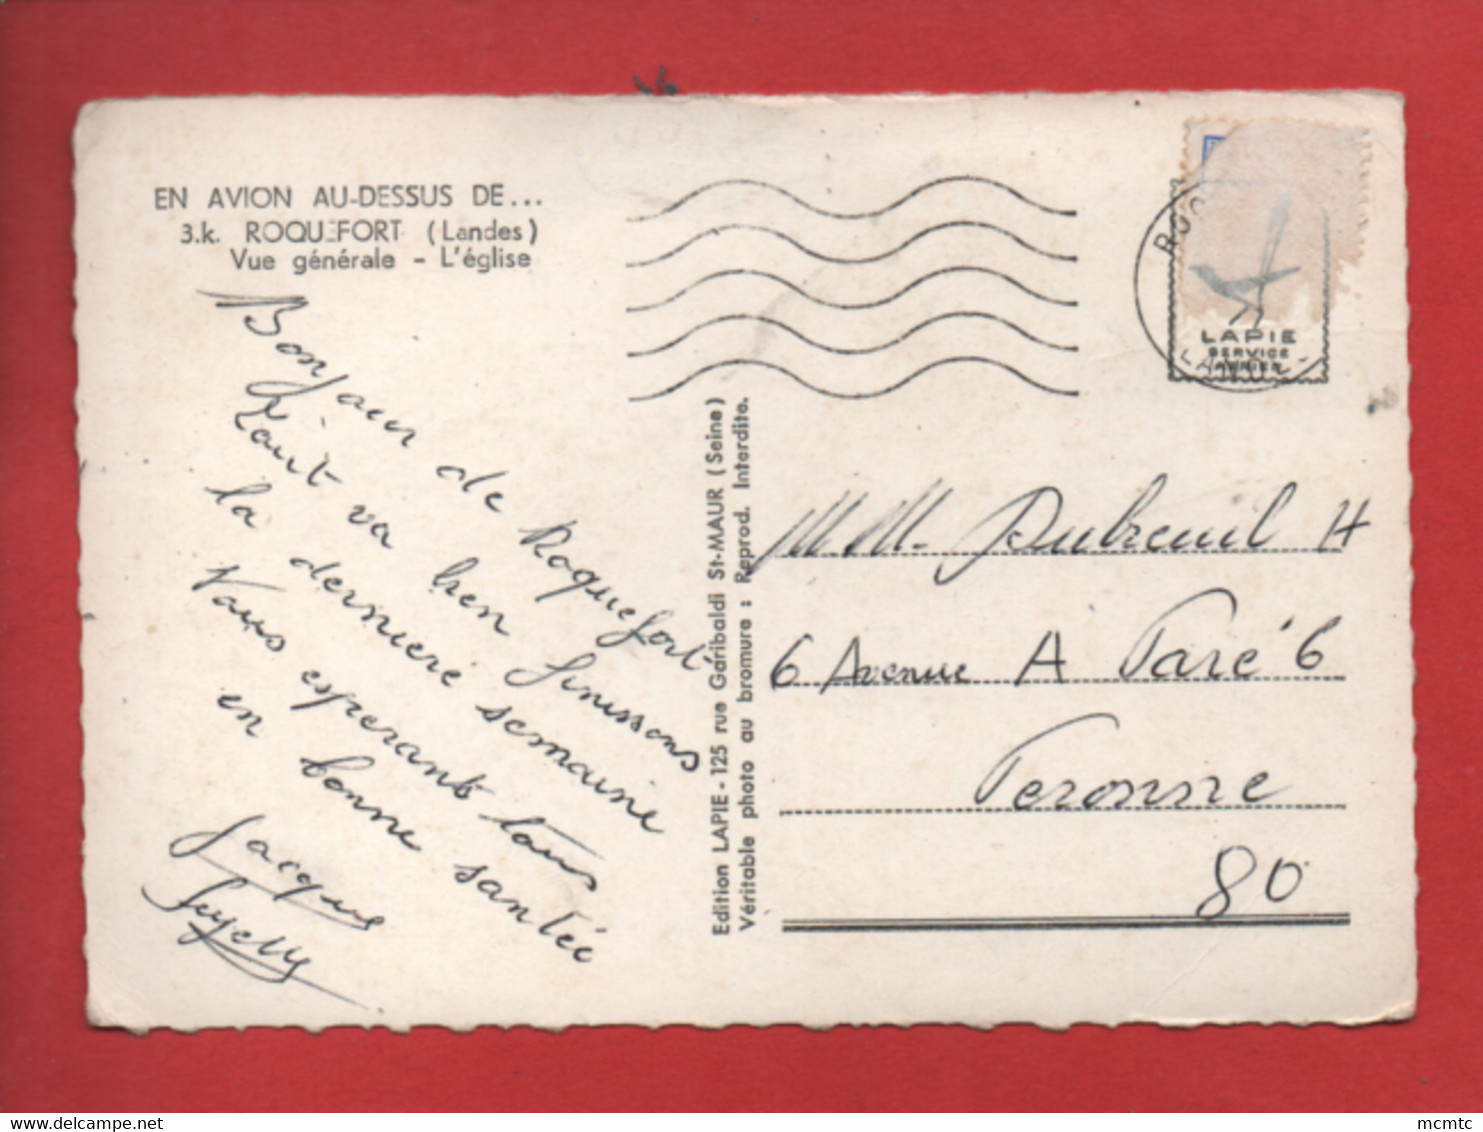 EN AVION AU-DESSUS DE...
3.k. ROQUEFORT (Landes)
Vue générale - L'église
Bonjour de Roquefort
Tout va bien finissons
la derniere semaine
Vous esperant tous
en bonne santée
Jacques
Edition LAPIE - 125 rue Garibaldi St-MAUR (Seine)
Véritable photo au bromure : Reprod. Interdite.
LAPIE
SERVICE
M.M. Dubreuil H
6 Avenue A Paré 6
Peronne
80
mcmtc